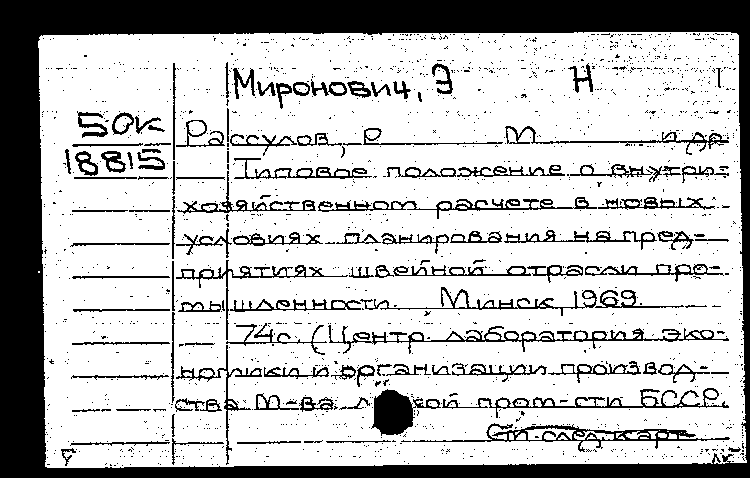 Миронович, Э Н
50К Рассулов, Р М и др
18815 Типовое положение о внутри-
хозяйственном расчете в новых
условиях планирования на пред-
приятиях швейной отрасли про-
мышленности. Минск, 1969.
74с. (Центр. лаборатория эко-
номики и организации производ-
ства М-ва кой пром-сти БССР.
См. след. карт